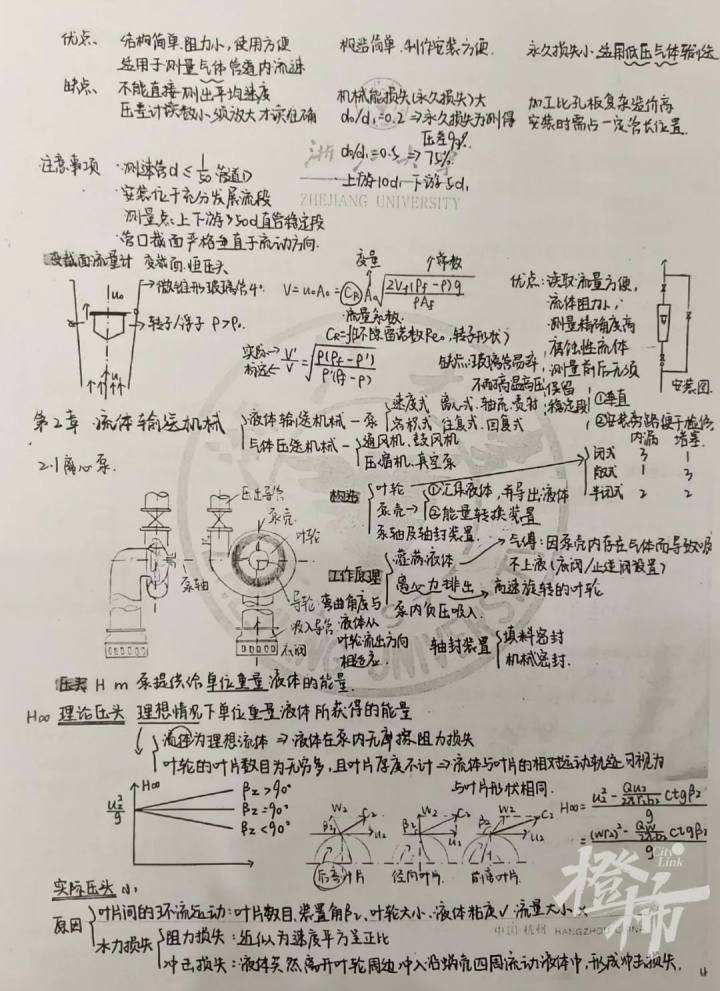 优点、 结构简单.阻力小,使用方便 构造简单.制作安装方便. 永久损失小.适用低压气体输送
适用于测量气体管道内流速
缺点、 不能直接测出平均速度 机械能损失(永久损失)大 加工比孔板复杂造价高
压差计读数小须放大才读准确 d₀/d₁=0.2 ⇒永久损失为测得 安装时需占一定管长位置.
压差
d₀/d₁=0.5 ⇒ 75%.
注意事项 ·测速管d≤1/50管道D 上游10d₁ 下游5d₁
·安装位于充分发展流段 ZHEJIANG UNIVERSITY
测量点:上下游>50d直管稳定段
·管口截面严格垂直于流动方向.
变截面流量计 变截面.恒压头 变量 常数
→微锥形玻璃管4°. V=u₀A₀=C_R A₀√(2V_f(ρ_f-ρ)g/ρA_f) 优点:读取流量方便,
流量系数. 流体阻力小,
→转子/浮子 ρ>ρ₀. 测量精确度高
实际→V'/标定←V=√(ρ(ρ_f-ρ')/ρ'(ρ_f-ρ)) 腐蚀性流体
测量前后无须保留稳定段
安装图.
①垂直
第2章 流体输送机械 液体输送机械-泵 速度式 离心式.轴流.喷射
容积式 往复式.回复式
气体压送机械-通风机、鼓风机
压缩机.真空泵
内漏 堵塞.
2.1离心泵. 闭式 3 1
敞式 1 3
半闭式 2 2
压出导管 构造 叶轮 ①汇集液体,并导出液体
泵壳 泵壳→②能量转换装置
叶轮 泵轴及轴封装置.
工作原理 灌满液体 →气缚:因泵壳内存在气体而导致吸
不上液(底阀/止逆阀设置)
离心力排出 →高速旋转的叶轮
泵轴 导轮.弯曲角度与 泵内负压吸入.
吸入导管 液体从
叶轮流出方向 轴封装置 填料密封
底阀 相适应. 机械密封.
压头 H m 泵提供给单位重量液体的能量.
H∞ 理论压头 理想情况下单位重量液体所获得的能量
流体为理想流体 ⇒液体在泵内无摩擦阻力损失
叶轮的叶片数目为无穷多,且叶片厚度不计⇒流体与叶片的相对运动轨迹可视为
与叶片形状相同.
H∞ β₂>90° β₂=90° β₂<90° u₂²/g
W₂ C₂ u₂ β₂ W₂ C₂ u₂ β₂ W₂ C₂ u₂ β₂
后弯叶片 径向叶片. 前弯叶片.
H∞=(u₂²-Qu₂/2πr₂b₂ ctgβ₂)/g
=((ωr₂)²-Qω/2πb₂ ctgβ₂)/g
实际压头 小
原因 叶片间的环流运动:叶片数目.装置角β₂、叶轮大小.液体粘度√ 流量大小×
水力损失 阻力损失:近似为速度平方呈正比
中国·杭州 HANGZHOU CHINA
冲击损失:液体突然离开叶轮周边冲入沿蜗壳四周流动液体中,形成冲击损失.
City Link
橙柿
4